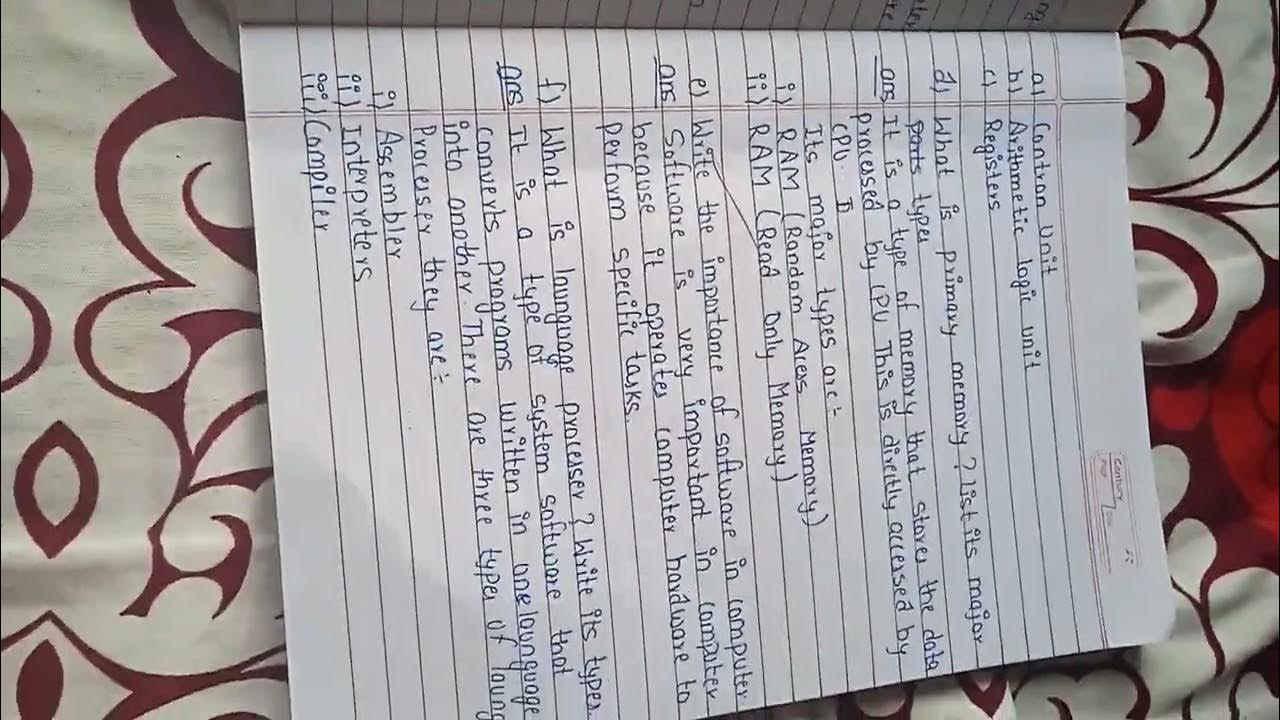 a) Contron Unit
b) Aritmetic logic unit
c) Registers
d) What is primary memory? list its major
types
ans It is a type of memory that stores the data
processed by CPU This is directly accessed by
CPU.
Its major types are:-
i) RAM (Random Acess Memory)
ii) RAM (Read only Memory)
e) Write the importance of software in computer
ans Software is very important in computer
because it operates computer hardware to
perform specific tasks.
f) What is lunguage processer? Write its types.
ans It is a type of system software that
converts programs written in one launguage
into another. There are three types of laung
Processer they are:-
i) Assembler
ii) Interpreters
iii) Compiler
Century